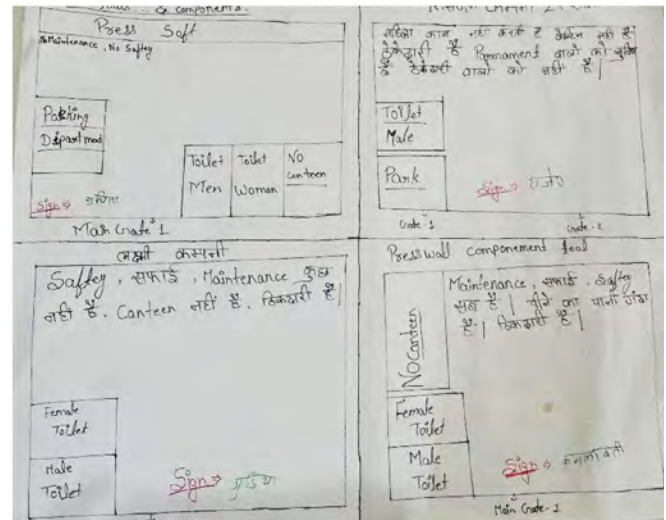 & components.
Press Saft
No Maintenance, No Saftey
Packing
Dipartmend
Toilet
Men
Toilet
Woman
No
canteen
Sign ⇒
Main Grate 1
महिला काम नहीं करती है केन्टिन नहीं है।
ठेकेदारी है Permament वालो को
है ठेकेदारी वालो को नहीं है।
Toilet
Male
Park
Sign ⇒
Grate-1
Grate-2
लक्ष्मी कम्पनी
Saftey, सफाई, Maintenance कुछ
नहीं है. Canteen नहीं है. ठिकदारी है|
Female
Toilet
Male
Toilet
Sign ⇒
Presswall componement tool
Maintenance, सफाई, Saftey
सब है| पीने का पानी गंदा
है| ठिकदारी है|
No Canteen
Female
Toilet
Male
Toilet
Sign ⇒ कमलावती
Main Grate-1